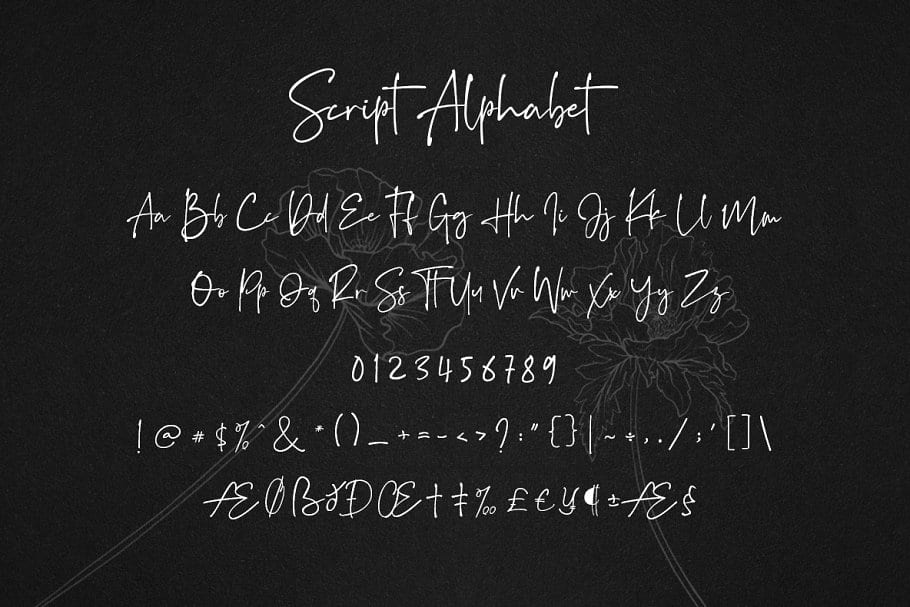 Script Alphabet
Aa Bb Cc Dd Ee Ff Gg Hh Ii Jj Kk Ll Mm
Oo Pp Qq Rr Ss Tt Uu Vv Ww Xx Yy Zz
0123456789
! @ # $ % ^ & * ( ) _ + = - < > ? : " { } | ~ ÷ , . / ; ' [ ] \
Æ Ø ß Ð Œ † ‡ ‰ £ € ¥ ¶ ± Æ §